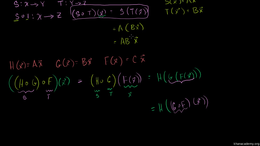 S: X → Y   T: Y → Z
S∘T: X → Z   (S∘T)(x̄) = S(T(x̄))
T(x̄) = Bx̄
= A(Bx̄)
= ABx̄
H(x̄) = Ax̄   G(x̄) = Bx̄   F(x̄) = Cx̄
((H∘G)∘F)(x̄) = (H∘G)(F(x̄)) = H(G(F(x̄)))
S T   S T x̄
= H((G∘F)(x̄))
khanacademy.org